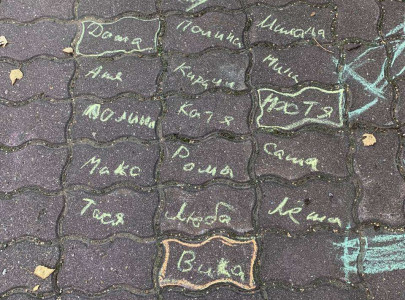 Даша Полина Милана
Аня Карина Мила
Полина Катя Настя
Макс Рома Саша
Тася Люба Леша
Вика